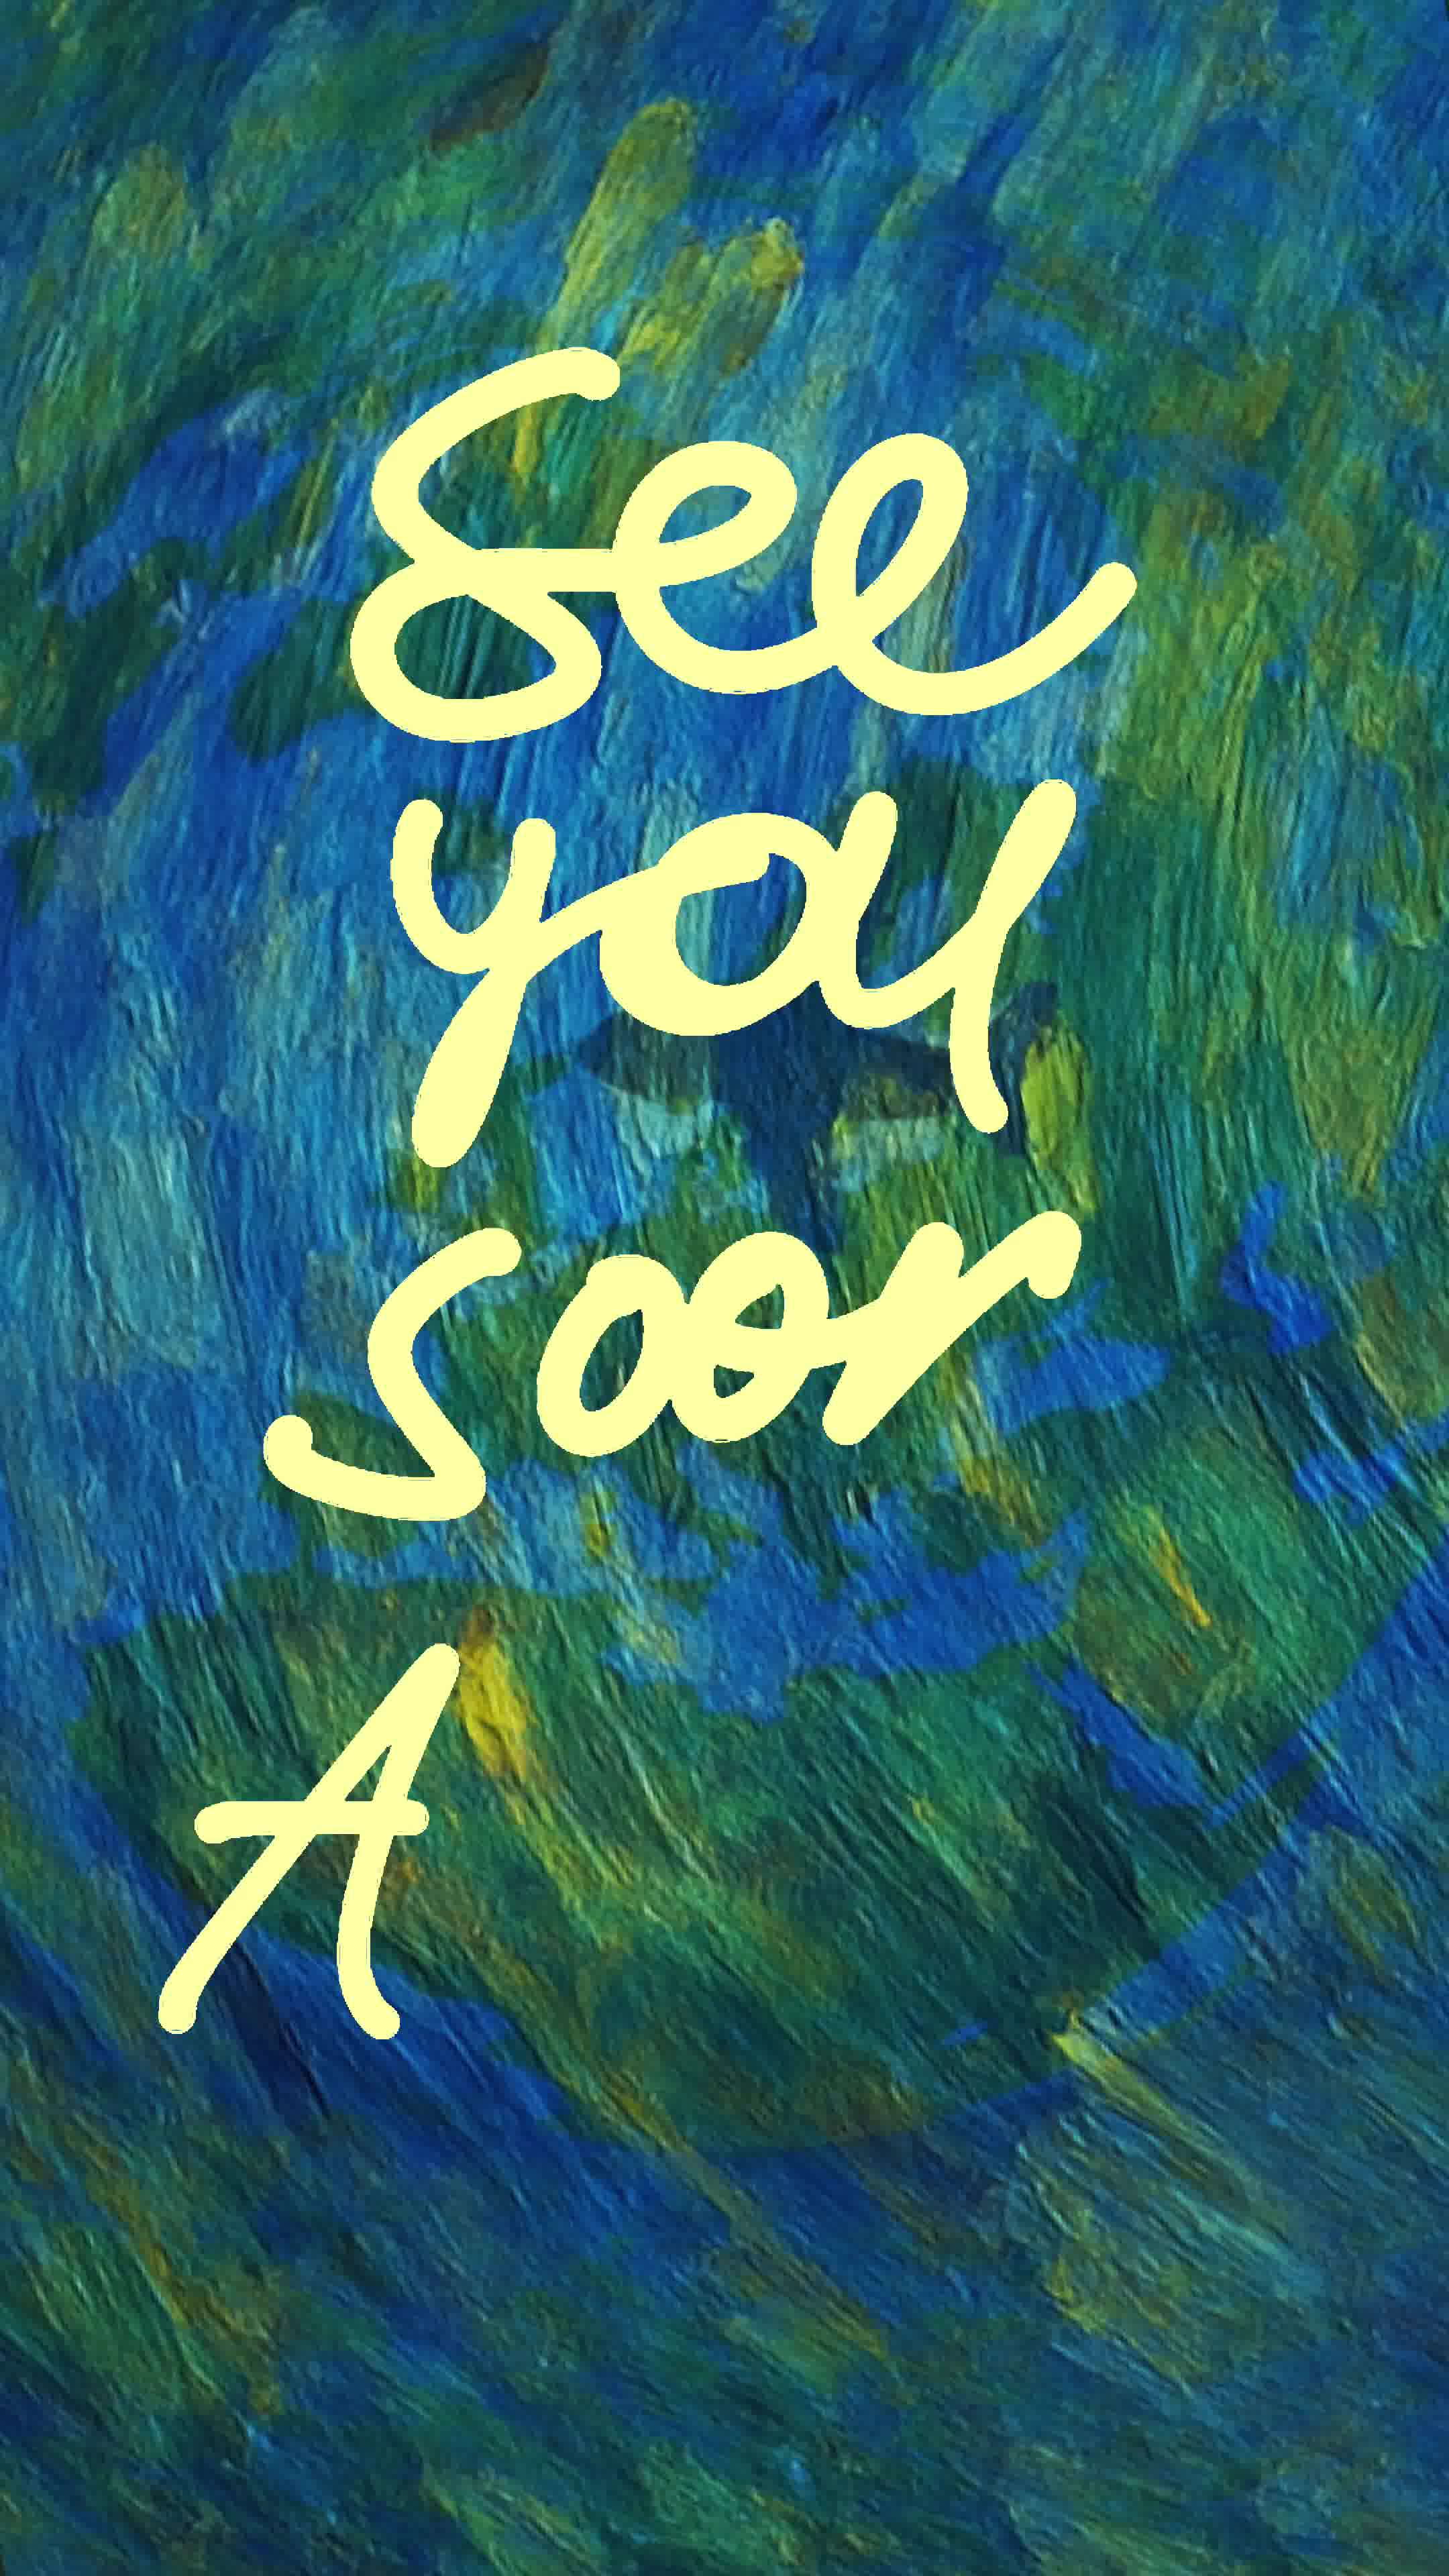 See
you
soon
A